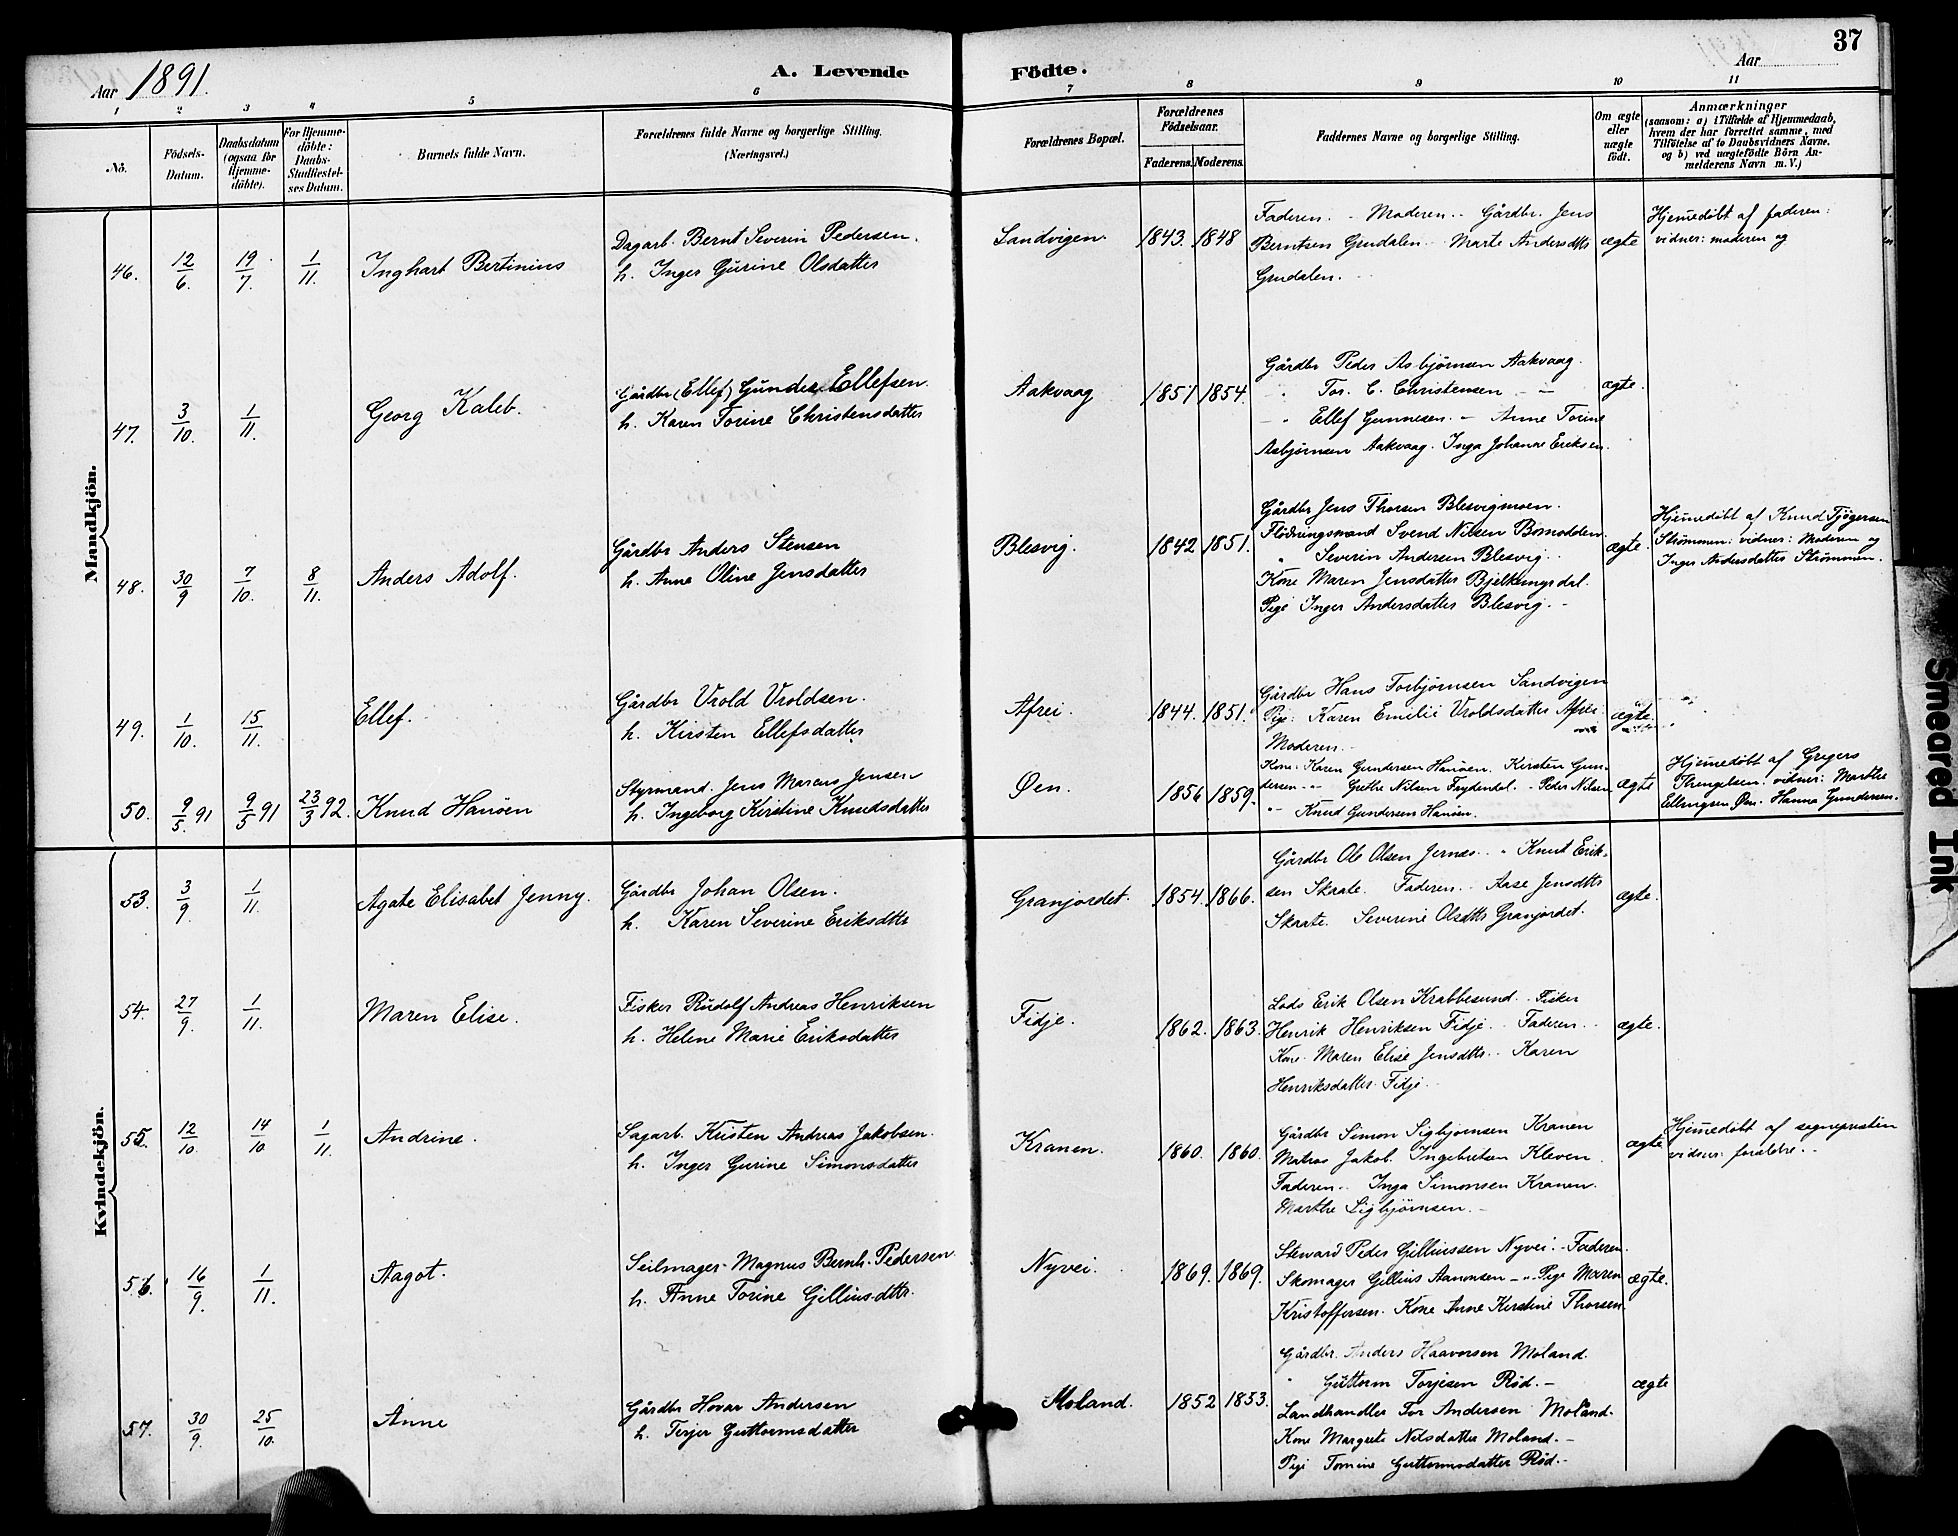 37
Aar 1891.
A. Levende Födte.
Aar
1 2 3 4 5 6 7 8 9 10 11
No.
Födsels-Datum.
Daabsdatum (ogsaa for Hjemme-döbte).
For Hjemme-döbte: Daabs-Stadfæstel-ses Datum.
Barnets fulde Navn.
Forældrenes fulde Navne og borgerlige Stilling. (Næringsvei.)
Forældrenes Bopæl.
Forældrenes Födselsaar.
Faderens. Moderens.
Faddernes Navne og borgerlige Stilling.
Om ægte eller uægte födt.
Anmærkninger (saasom: a) i Tilfælde af Hjemmedaab, hvem der har forrettet samme, med Tilföielse af to Daabsvidners Navne, og b) ved uægtefödte Börn An-melderens Navn m. V.)
Mandkjön.
46. 12/6. 19/7. 1/11. Inghart Bertinius
Dagarb. Bernt Severin Pedersen.
h. Inger Gurine Olsdatter
Sandvigen. 1843. 1848
Faderen. - Moderen. - Gårdbr. Jens
Berntsen Grudalen. Marte Andersdtr
Grudalen.
ægte
Hjemedøbt af faderen:
vidner: moderen og
47. 3/10. 1/11. Georg Kaleb.
Gårdbr (Ellef) Gunder Ellefsen.
h. Karen Torine Christensdatter
Aakvaag 1851 1854.
Gårdbr Peder Asbjørnsen Aakvaag.
" Tor. C. Christensen - -
- " Ellef Gunnesen. - Anne Torine
Asbjørnsen Aakvaag. Inga Johanne Eriksen.
ægte.
48. 30/9 7/10. 8/11. Anders Adolf.
Gårdbr Anders Stensen
h. Anne Oline Jensdatter
Blesvig. 1842 1851.
Gårdbr Jens Thorsen Blesvigmoen.
Flödningsmand Svend Nilsen Bomodden.
" Severin Andersen Blesvig.
Kone Maren Jensdatter Bjelkemyrdal.
Pige Inger Andersdatter Blesvig. -
ægte.
Hjemedøbt af Knud Tjøgersen
Strømmen: vidner: Moderen og
Inger Andersdatter Strømmen.
49. 1/10. 15/11. Ellef.
Gårdbr Vrold Vroldsen.
h. Kirsten Ellefsdatter
Afrei. 1844. 1851.
Gårdbr Hans Torbjørnsen Sandvigen
Pige: Karen Emilie Vroldsdatter Afrei
Moderen.
ægte.
50. 9/5. 91 9/5 91 23/3 92. Knud Hanöen
Styrmand. Jens Marcus Jensen
h. Ingeborg Kirstine Knudsdatter
Øen. 1856 1859.
Kone: Karen Gundersen Hanöen. Kirsten Gun-
dersen -"- Grethe Nilsen Frydendal. - Peder Nilsen
"- Knud Gundersen Hanöen.
ægte
Hjemedøbt af Gregers
Thengelsen. vidner: Marthe
Ellingsen Øen. Hanna Gundersen.
Kvindekjön.
53. 3/9. 1/11. Agate Elisabet Jenny.
Gårdbr Johan Olsen.
h. Karen Severine Eriksdtr
Granjordet. 1854. 1866.
Gårdbr Ole Olsen Jernæs. " Knut Erik-
sen Skaate. Faderen. - Aase Jensdtr
Skaate. Severine Olsdtr Granjordet.
ægte.
54. 27/9. 1/11. Maren Elise.
Fisker Rudolf Andreas Henriksen
h. Helene Marie Eriksdatter
Fidje. 1862. 1863.
Lods Erik Olsen Krabbesund. - Fisker
Henrik Henriksen Fidje. - Faderen. -
Kone. Maren Elise Jensdtr. - Karen
Henriksdatter Fidje.
ægte.
55. 12/10. 14/10. 1/11. Andrine.
Sagarb. Kristen Andreas Jakobsen.
h. Inger Gurine Simonsdatter
Kranen. 1860. 1860.
Gårdbr Simon Sigbjørnsen Kranen
Matros Jakob Ingebretsen Kleven.
Faderen. - Inga Simonsen Kranen.
Marthe Sigbjørnsen. -
ægte
Hjemedøbt af sognepresten
vidner: forældre. -
56. 16/9. 1/11. Aagot.
Seilmager. Magnus Bernh. Pedersen
h. Anne Torine Gilliusdtr.
Nyvei. 1869. 1869.
Steward Peder Gilliussen Nyvei. - Faderen.
Skomager Gillius Aanonsen - " - Pige Maren
Kristoffersen. Kone Anne Kirstine Thorsen.
ægte.
57. 30/9. 25/10. Anne
Gårdbr Hovar Andersen
h. Terjer Guttormsdatter
Moland. 1852 1853.
Gårdbr. Anders Haavorsen Moland.
" Guttorm Torjesen Röd. -
Landhandler Tor Andersen Moland.
Kone Margrete Nilsdatter Moland. -
Pige Tomine Guttormsdatter Röd. -
ægte
Smeared Ink